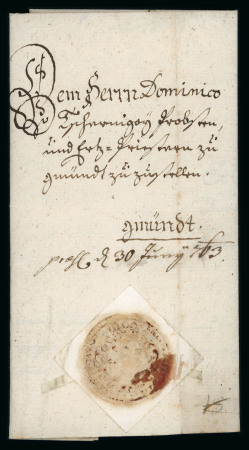 Dem Herrn Dominico
Tschernigoy Probsten,
und Ertz-Priestern zu
gmündt zuzustellen.
gmündt.
den 30 Juny